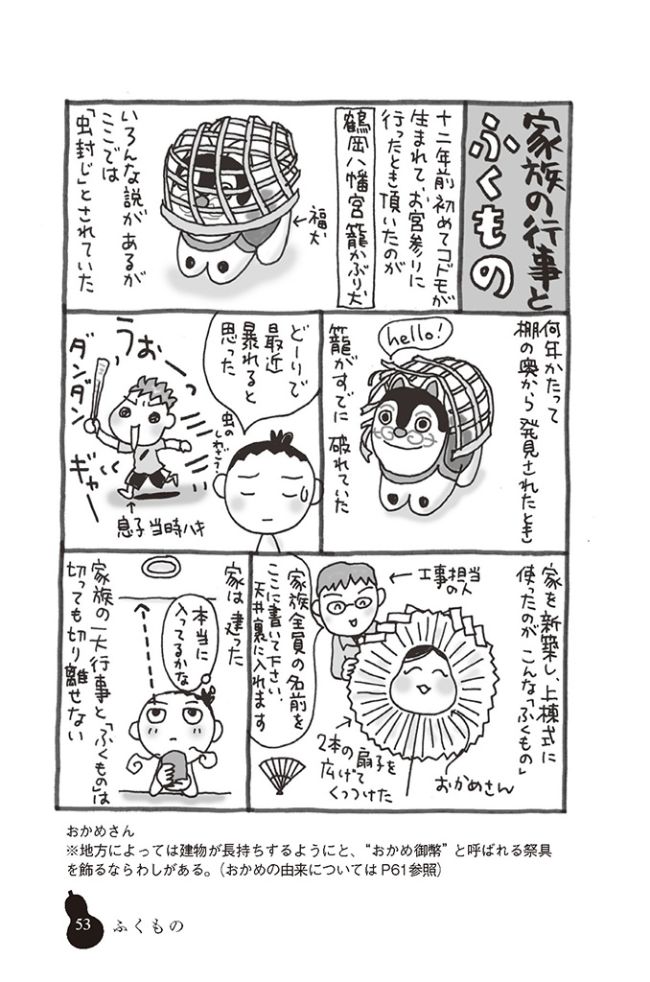 家族の行事と
ふくもの
十二年前 初めてコドモが
生まれて、お宮参りに
行ったとき頂いたのが
鶴岡八幡宮 籠かぶり犬
福犬
いろんな説があるが
ここでは
「虫封じ」とされていた
何年かたって
棚の奥から発見されたとき
hello!
籠がすでに破れていた
どーりで
最近
暴れると
思った
虫の
しわざ?
うおーっ
ダンダン
ギャー
息子 当時ハオ
家を新築し、上棟式に
使ったのが こんな「ふくもの」
工事担当
の人
家族全員の名前を
ここに書いて下さい.
天井裏に入れます
2本の扇子を
広げて
くっつけた
おかめさん
家は建った
本当に
入ってるかな
家族の一大行事と「ふくもの」は
切っても切り離せない
おかめさん
※地方によっては建物が長持ちするようにと、“おかめ御幣”と呼ばれる祭具
を飾るならわしがある。（おかめの由来についてはP61参照）
53
ふくもの